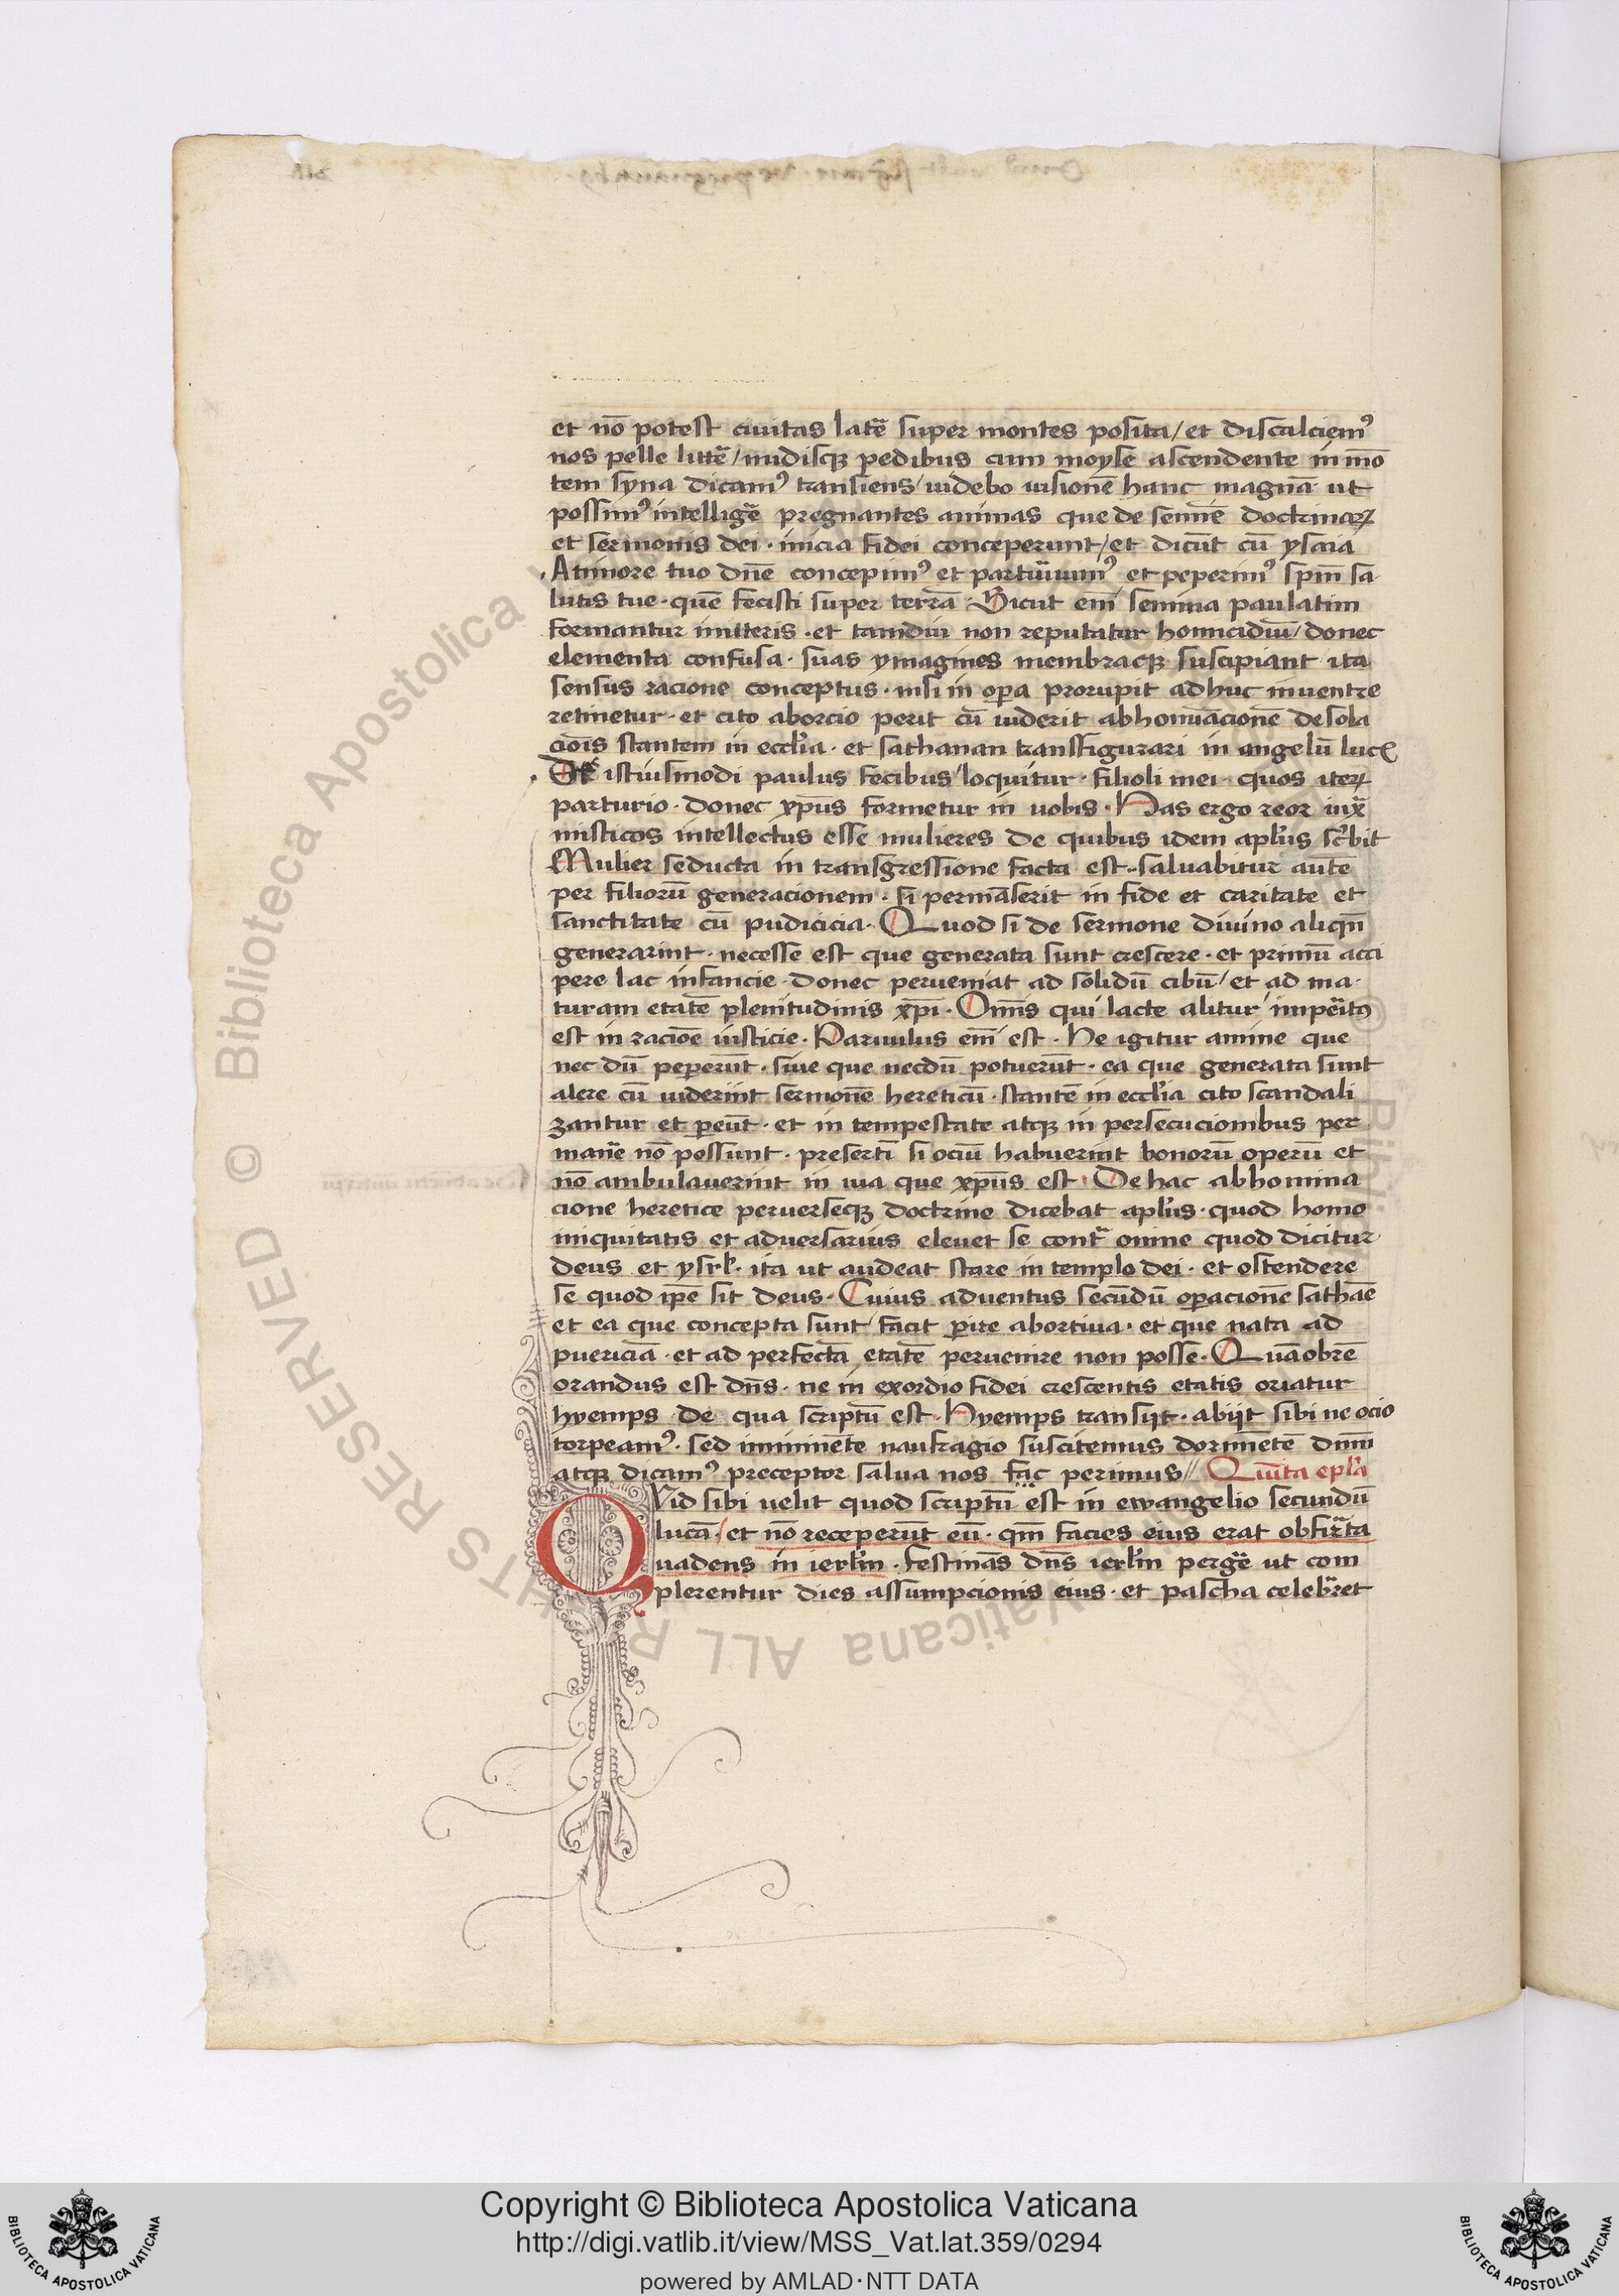 et nō potest ciuitas latē super montes posita / et discalciemꝰ
nos pelle littē / nudisqꝫ pedibus cum moyse ascendente in mō
tem syna dicamꝰ transiens / uidebo uisionē hanc magnā ut
possimꝰ intelligē pregnantes animas que de semīe doctrinaꝝ
et sermonis dei · inicia fidei conceperunt / et dicūt cū ysaia
A timore tuo dn̄e concepimꝰ et parturiuimꝰ et peperimꝰ sp̄m sa
lutis tue · quē fecisti super terrā · Sicut em̄ semina paulatim
formantur in uteris · et tamdiu non reputatur homicidiū / donec
elementa confusa · suas ymagines membraqꝫ suscipiant ita
sensus racione conceptus · nisi in oꝑa prorupit adhuc in uentre
retinetur · et cito aborcio perit cū uiderit abhomīacionē desola
cōis stantem in eccl̄ia · et sathanan transfigurari in angelū lucꝭ
De istiusmodi paulus fetibus loquitur · filioli mei · quos iteꝝ
parturio · donec xp̄us formetur in uobis · Has ergo reor iux̄
misticos intellectus esse mulieres de quibus idem apl̄us sc̄bit
Mulier seducta in transgressione facta est · saluabitur autē
per filiorū generacionem · si permāserit in fide et caritate et
sanctitate cū pudicicia · Quod si de sermone diuino aliqn̄
generarint · necesse est que generata sunt crescere · et primū acci
pere lac infancie · donec perueniat ad solidū cibū / et ad ma
turam etatē plenitudinis xp̄i · Omīs qui lacte alitur / imperitꝰ
est in raciōe iusticie · Paruulus em̄ est · He igitur anime que
nec dū peperūt · siue que necdū potuerūt · ea que generata sunt
alere cū uiderint sermonē hereticū · stantē in eccl̄ia cito scandali
zantur et ꝑeūt · et in tempestate atqꝫ in persecucionibus per
manē nō possunt · presertī si ociū habuerint bonorū operū et
nō ambulauerint in uia que xp̄us est · De hac abhomina
cione heretice peruerseqꝫ doctrine dicebat apl̄us · quod homo
iniquitatis et aduersarius eleuet se contͣ omne quod dicitur
deus et ysrl̄ · ita ut audeat stare in templo dei · et ostendere
se quod ip̄e sit deus · Cuius aduentus secūdū oꝑacionē sathāe
et ea que concepta sunt facit ꝑire abortiua · et que nata ad
puericiā · et ad perfectā etatē peruenire non posse · Quāobrē
orandus est dn̄s · ne in exordio fidei crescentis etatis oriatur
hyemps de qua scriptū est · Hyemps transijt · abijt sibi ne ocio
torpeamꝰ · sed imminēte naufragio suscitemus dormiētē dn̄m
atqꝫ dicamꝰ preceptor salua nos fac perimus // Quīta epl̄a
QVid sibi uelit quod scriptū est in ewangelio secundū
lucā / et nō receperūt eū · qm̄ facies eius erat obfirͣta
uadens in ierl̄m · Festinās dn̄s ierl̄m pergē ut com
plerentur dies assumpcionis eius · et pascha celebret
© Biblioteca Apostolica Vaticana ALL RIGHTS RESERVED
Copyright © Biblioteca Apostolica Vaticana
http://digi.vatlib.it/view/MSS_Vat.lat.359/0294
powered by AMLAD·NTT DATA
BIBLIOTECA APOSTOLICA VATICANA
BIBLIOTECA APOSTOLICA VATICANA